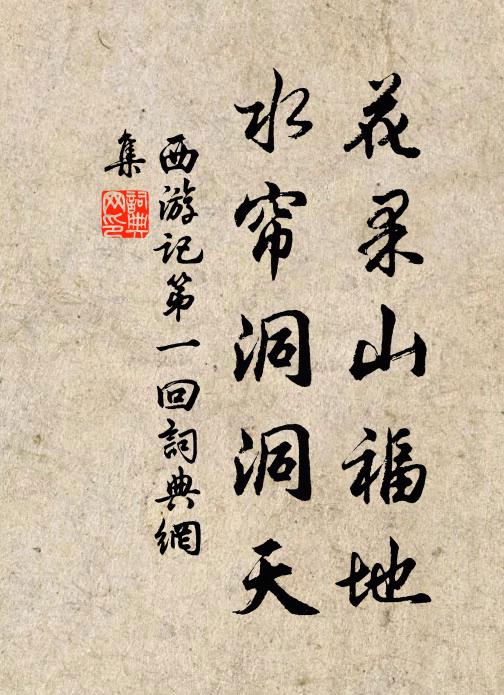 花果山福地
水帘洞洞天
西游记第一回詞典網
集
詞典
网印